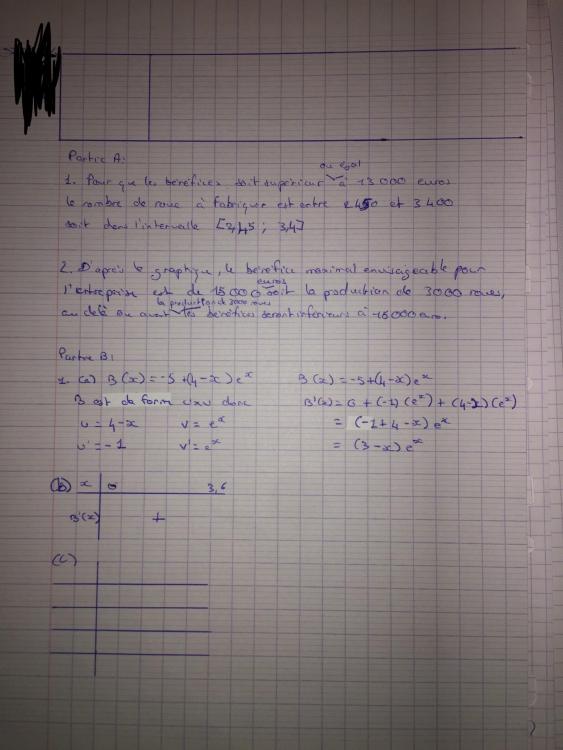 Partie A:
ou egal
1. Pour que les bénéfices soit supérieur à 13 000 euros
le nombre de roue à fabriquer est entre 2450 et 3 400
soit dans l'intervalle [2,45 ; 3,4]
2. D'après le graphique, le bénéfice maximal envisageable pour
euros
l'entreprise est de 15000 soit la production de 3000 roues,
la production de 3000 roues
au delà ou avant les bénéfices seront inférieurs à 15 000
Partie B:
1. (a) B(x) = -5 + (4-x)e^x
B est de forme u×v donc
u = 4-x v = e^x
u' = -1 v' = e^x
B(x) = -5+(4-x)e^x
B'(x) = 0 + (-1)(e^x) + (4-x)(e^x)
= (-1+4-x)e^x
= (3-x)e^x
(b) x 0 3,6
B'(x) +
(c)